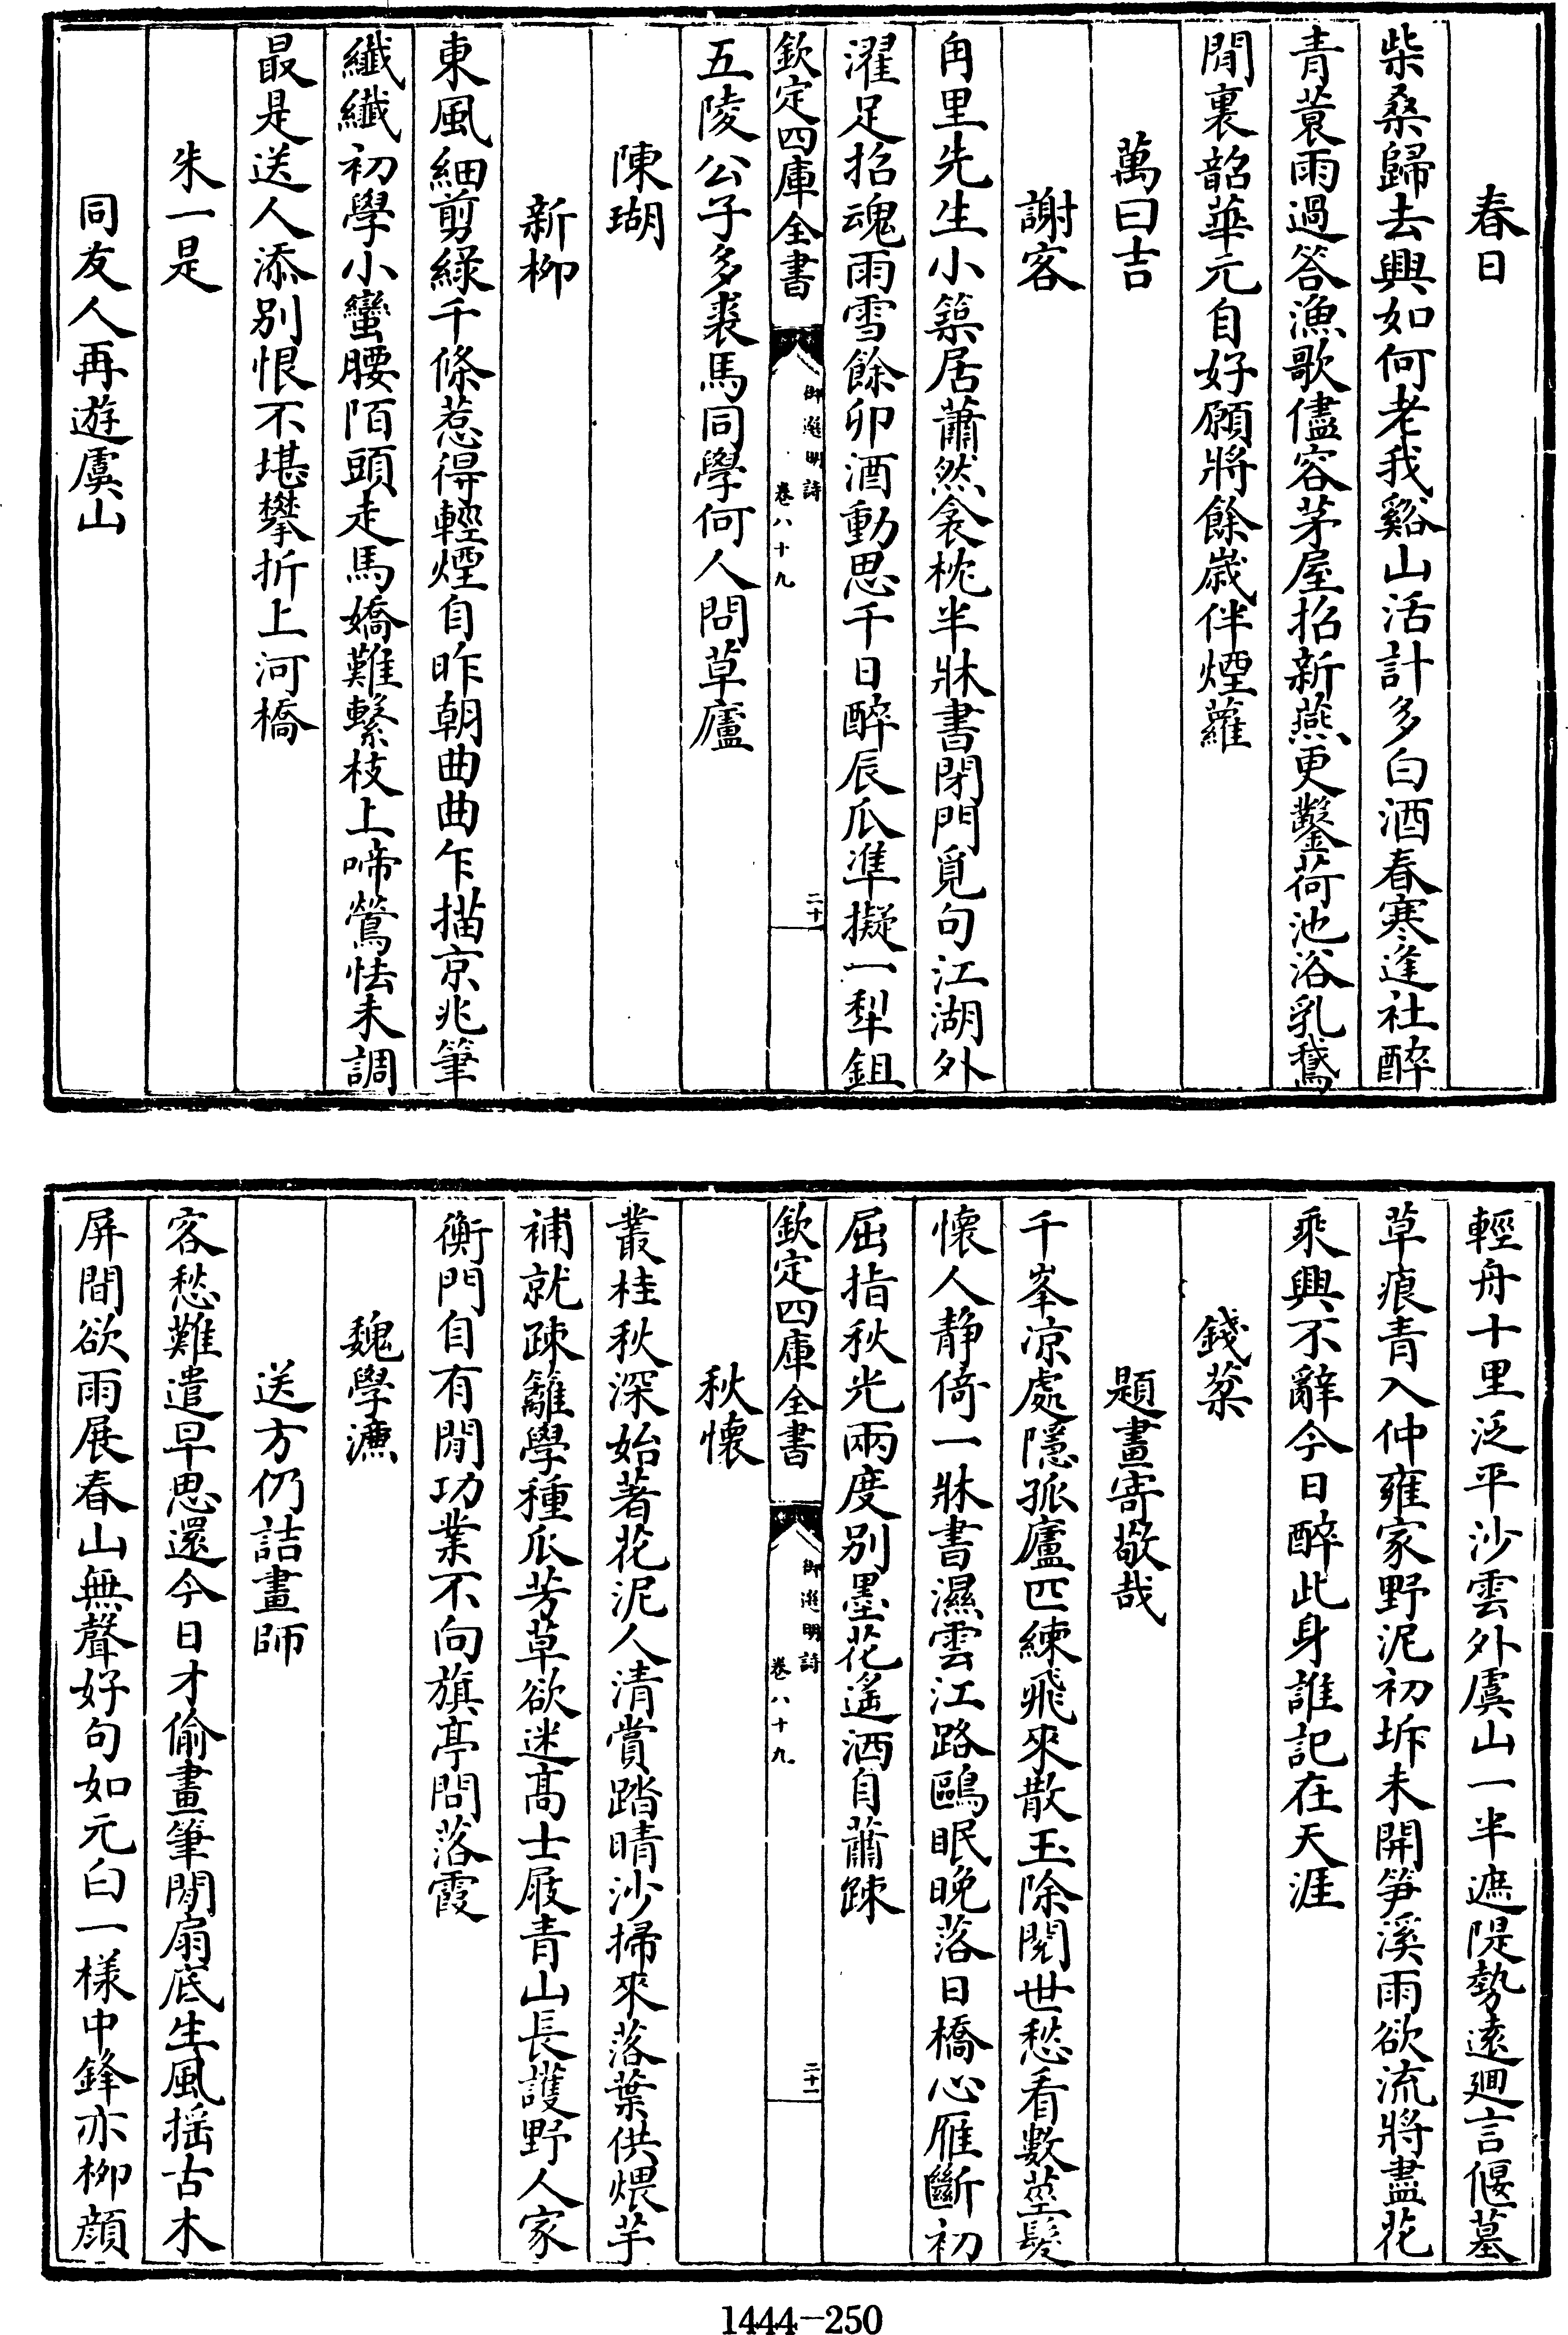 春日
柴桑歸去興如何老我谿山活計多白酒春寒逢社醉
青蓑雨過答漁歌儘容茅屋招新燕更鑿荷池浴乳鵞
閒裏韶華元自好願將餘歲伴煙蘿
萬曰吉
謝客
甪里先生小築居蕭然衾枕半牀書閉門覓句江湖外
濯足招魂雨雪餘卯酒動思千日醉辰瓜準擬一犁鉏
欽定四庫全書
御選明詩
卷八十九
二十
五陵公子多裘馬同學何人問草廬
陳瑚
新栁
東風細剪綠千條惹得輕煙自昨朝曲曲乍描京兆筆
纖纖初學小蠻腰陌頭走馬嬌難繫枝上啼鶯怯未調
最是送人添别恨不堪攀折上河橋
朱一是
同友人再遊虞山
輕舟十里泛平沙雲外虞山一半遮隄勢遠廻言偃墓
草痕青入仲雍家野泥初坼未開笋溪雨欲流將盡花
乘興不辭今日醉此身誰記在天涯
錢棻
題畫寄敬哉
千峯凉處隱孤廬匹練飛來散玉除閱世愁看數莖髮
懷人静倚一牀書濕雲江路鷗眠晚落日橋心雁斷初
屈指秋光兩度别墨花遙洒自蕭踈
欽定四庫全書
御選明詩
卷八十九
二十一
秋懷
叢桂秋深始著花泥人清賞踏晴沙掃來落葉供煨芋
補就踈籬學種瓜芳草欲迷髙士屐青山長護野人家
衡門自有閒功業不向旗亭問落霞
魏學濂
送方仍詰畫師
客愁難遣早思還今日才偷畫筆閒扇底生風摇古木
屏間欲雨展春山無聲好句如元白一様中鋒亦栁顔
1444-250